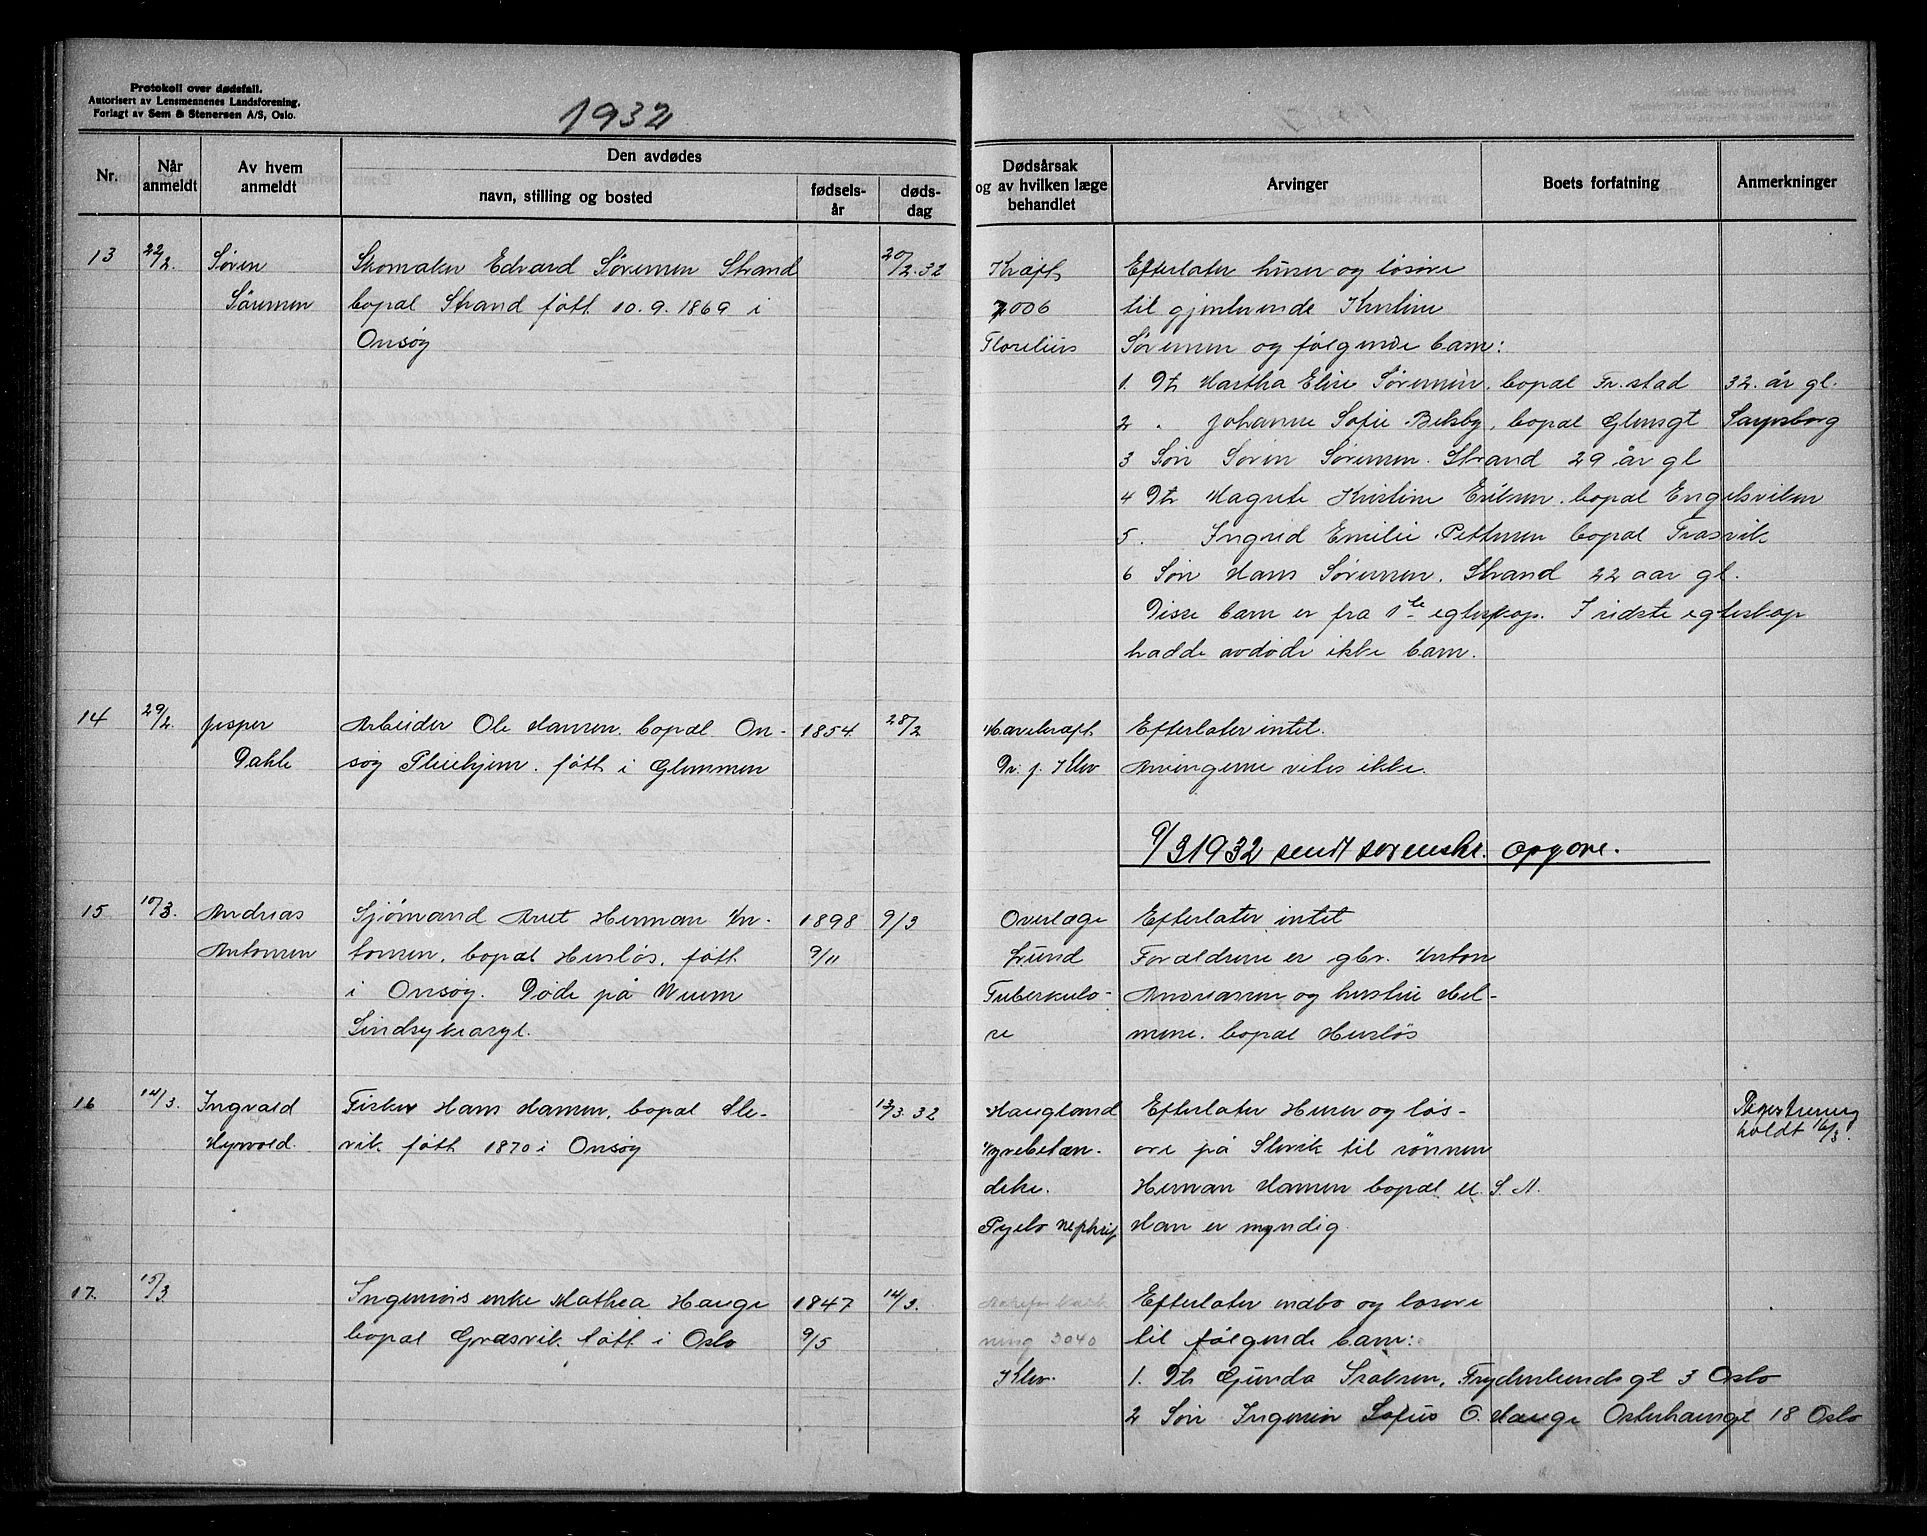 Protokoll over dødsfall.
Autorisert av Lensmennenes Landsforening.
Forlagt av Sem & Stenersen A/S, Oslo.
1932
Nr.
Når anmeldt
Av hvem anmeldt
Den avdødes
navn, stilling og bosted
fødsels-år
døds-dag
Dødsårsak og av hvilken læge behandlet
Arvinger
Boets forfatning
Anmerkninger
13 22/2. Søren Skomaker Edvard Sørensen Strand 20/2.32 Kræft Efterlater huser og løsøre
Sørensen bopæl Strand født 10.9.1869 i 7006 til gjenlevende Kristine
Onsøy Florelius Sørensen og følgende barn:
1. Dtr Martha Elise Sørensen, bopæl Fr.stad 32. år gl.
2 . Johanne Sofie Beksby, bopæl Glemsgt Sarpsborg
3 Søn Søren Sørensen. Strand 29 år gl
4 Dtr Magrete Kristine Eriksen. bopæl Engelsviken
5. Ingrid Emilie Pettersen bopæl
6 Søn Hans Sørensen. Strand 22 aar gl.
Disse barn er fra 1ste egteskap. I sidste egteskap
hadde avdøde ikke barn.
14 29/2. Jesper Arbeider Ole Hansen bopæl On- 1854 28/2 Mavekræft Efterlater intet.
Dahle søy Pleiehjem. født i Glemmen Dr. J. Klev Arvingerne vites ikke.
9/3 1932 sendt sorenskr. opgave.
15 10/3. Andreas Sjømand Arnt Herman An- 1898 9/3 Overlæge Efterlater intet
Antonsen tonsen, bopæl Husløs, født 9/11 Lund Forældrene er gbr. Anton
i Onsøy. Døde på Veum Tuberkulo- Andreassen og hustru Hel-
Sindsykeasyl. se mine. bopæl Husløs
16 14/3. Ingvald Fisker Hans Hansen, bopæl Sle- 13/3 32 Haugland Efterlater Huser og løs-
Hyrvold. vik født 1870 i Onsøy Nyrebetæn- øre på Slevik til sønnen
delse. Herman Hansen bopæl U.S.A.
Pyelo nephrit Han er myndig.
Registrering
holdt 16/3.
17. 15/3 Ingeniørs enke Mathea Hauge 1847 14/3. Efterlater indbo og løsøre
bopæl Græsvik født i Oslo 9/5 ning 3040 til følgende barn:
Klev. 1. Dtr Gunda Isaksen, Frydenlundsgt 3 Oslo
2 Søn Ingeniør Sofus O. Hauge Osterhausgt 18 Oslo